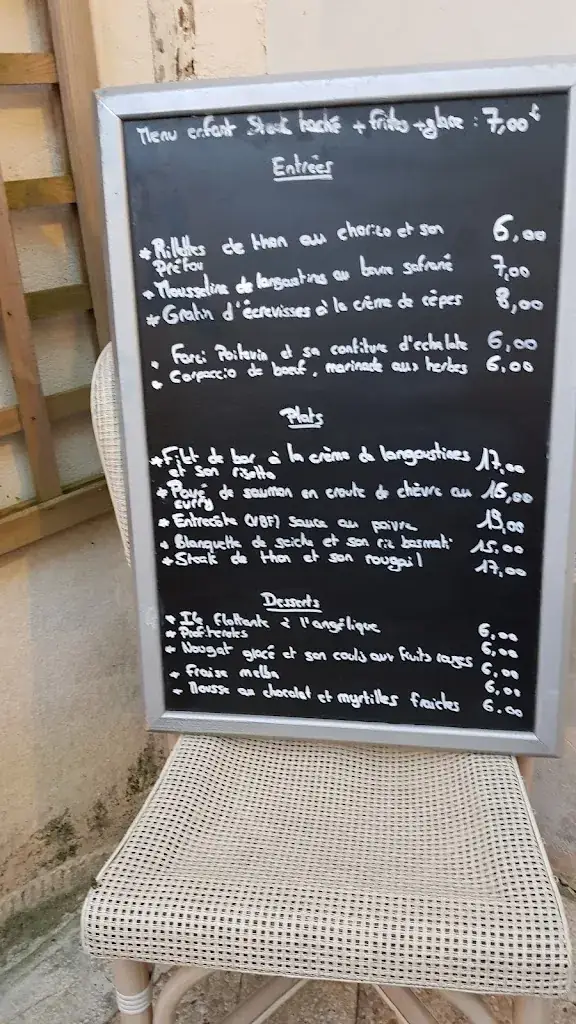 Menu enfant Steak haché + frites + glace : 7,00 €
Entrées
* Rillettes de thon au chorizo et son 6,00
Préfou
* Mousseline de langoustines au beurre safrané 7,00
* Gratin d'écrevisses à la crème de cèpes 8,00
* Farci Poitevin et sa confiture d'echalote 6,00
* Carpaccio de boeuf, marinade aux herbes 6,00
Plats
* Filet de bar à la crème de langoustines 17,00
et son risotto
* Pavé de saumon en croute de chèvre au 16,00
curry
* Entrecôte (VBF) sauce au poivre 19,00
* Blanquette de seiche et son riz basmati 15,00
* Steak de thon et son rougail 17,00
Desserts
* Ile flottante à l'angélique 6,00
* Profiteroles 6,00
* Nougat glacé et son coulis aux fruits rouges 6,00
* Fraise melba 6,00
* Mousse au chocolat et myrtilles fraiches 6.00